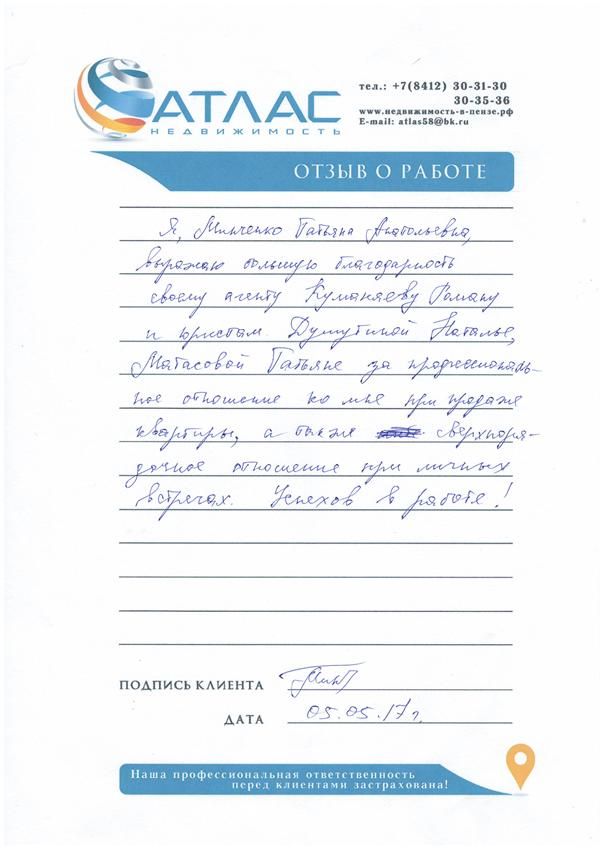 АТЛАС
НЕДВИЖИМОСТЬ
тел.: +7(8412) 30-31-30
30-35-36
www.недвижимость-в-пензе.рф
E-mail: atlas58@bk.ru
ОТЗЫВ О РАБОТЕ
Я, Минченко Татьяна Анатольевна,
выражаю большую благодарность
своему агенту Куманяеву Роману
и юристам Душутиной Наталье,
Матасовой Татьяне за профессиональ-
ное отношение ко мне при продаже
квартиры, а также сверхпоря-
дочное отношение при личных
встречах. Успехов в работе!
ПОДПИСЬ КЛИЕНТА
ДАТА 05.05.17г.
Наша профессиональная ответственность
перед клиентами застрахована!